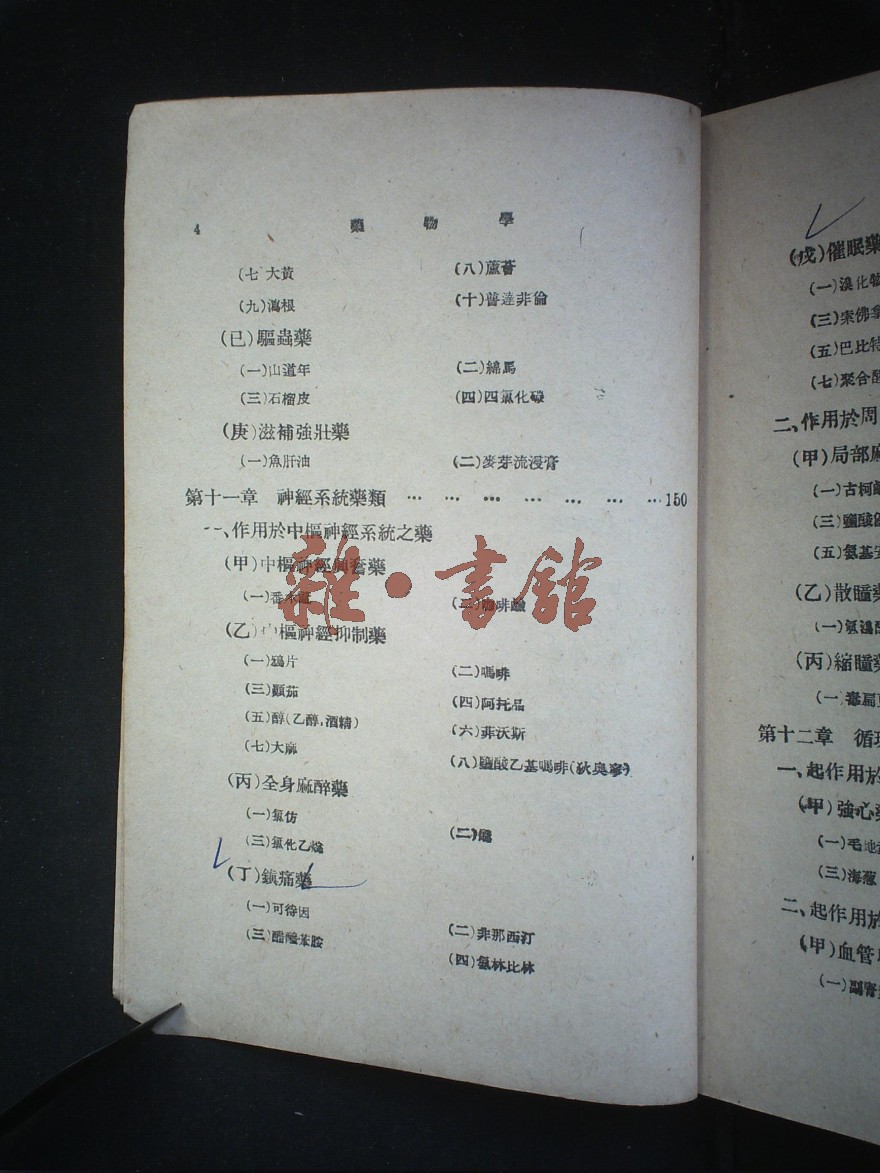 4 藥物學
(七)大黃 (八)蘆薈
(九)瀉根 (十)普達非倫
(已)驅蟲藥
(一)山道年 (二)綿馬
(三)石榴皮 (四)四氯化碳
(庚)滋補強壯藥
(一)魚肝油 (二)麥芽流浸膏
第十一章 神經系統藥類 … … … … … … …150
一、作用於中樞神經系統之藥
(甲)中樞神經興奮藥
(二)咖啡鹼
(乙)中樞神經抑制藥
(一)鴉片 (二)嗎啡
(三)顛茄 (四)阿托品
(五)醇(乙醇,酒精) (六)菲沃斯
(七)大麻 (八)鹽酸乙基嗎啡(狄奧寧)
(丙)全身麻醉藥
(一)氯仿 (二)醚
(三)氯化乙烷
(丁)鎮痛藥
(一)可待因 (二)非那西汀
(三)醋醯苯胺 (四)氨林比林
(戊)催眠藥
(一)溴化物
(三)索佛拿
(五)巴比特
(七)聚合醛
二、作用於周
(甲)局部麻
(一)古柯鹼
(三)鹽酸
(五)氨基
(乙)散瞳藥
(丙)縮瞳藥
(一)毒扁豆
第十二章 循環
一、起作用於
(甲)強心藥
(一)毛地黃
(三)海葱
二、起作用於
(甲)血管
(一)副腎
雜·書館